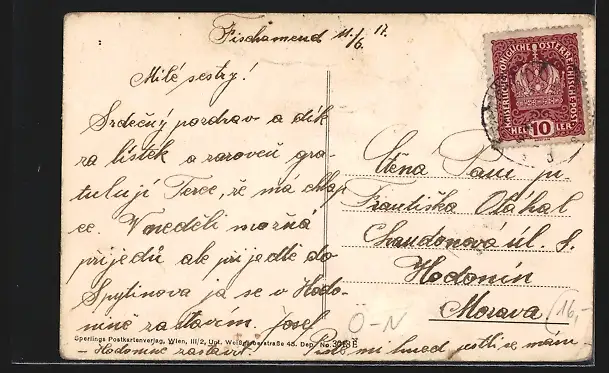 Fischamend 11./6. 17.
Milé sestry!
Srdečný pozdrav a dík
za lístek a zároveň gra-
tuluji Terce, že má chlap
ce. V neděli možná
přijedu ale přijedte do
Spytinova ja se v Hodo-
níně zastavím. Josef
– Hodoníně zastavit. Pište mi hned jestli se mám
Ctěná Paní pí.
Františka Otáhal
Chaudonová úl. 8.
Hodonín
Morava
KAISERLICHE KÖNIGLICHE ÖSTERREICHISCHE POST
HELLER 10
16,-
Ö-N
Sperlings Postkartenverlag, Wien, III/2, Unt. Weißgerberstraße 45. Dep. No. 3018 E